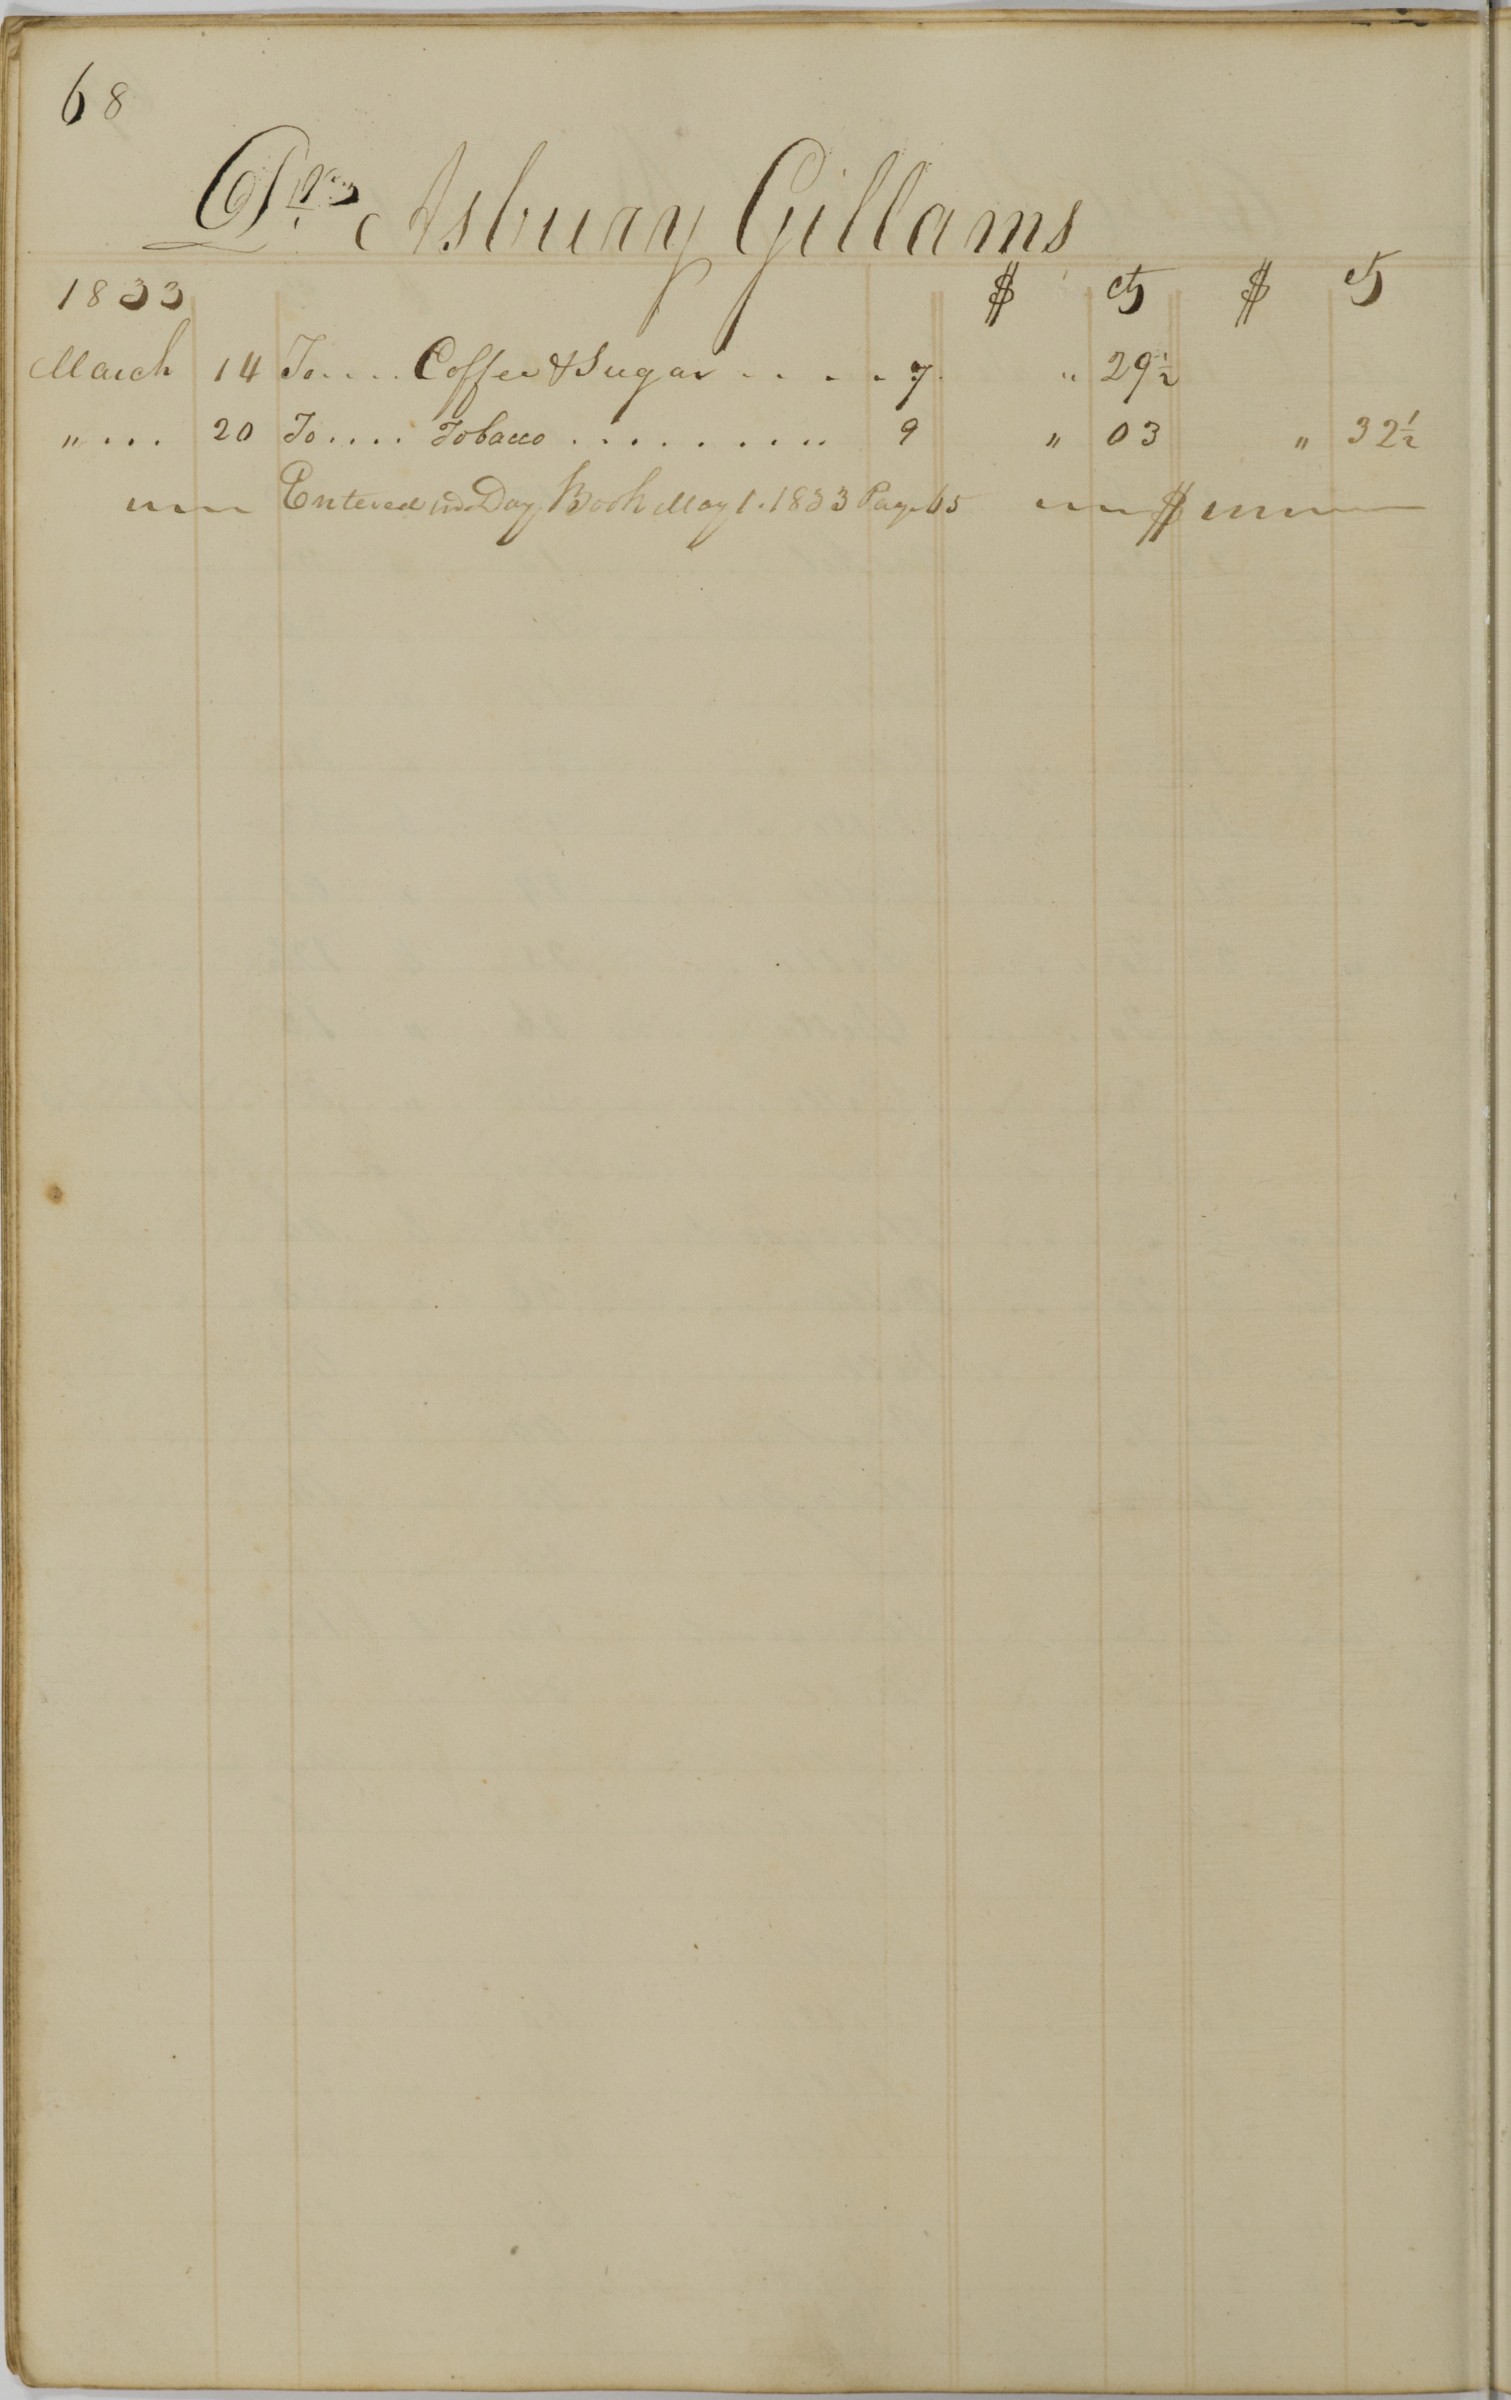 68
Dr. Asbury Gillams
1833 $ cts $ cts
March 14 To.... Coffee & Sugar ..... 7 " 29½
"... 20 To.... Tobacco .......... 9 " 03 " 32½
Entered in Day Book May 1. 1833 Page 65 $